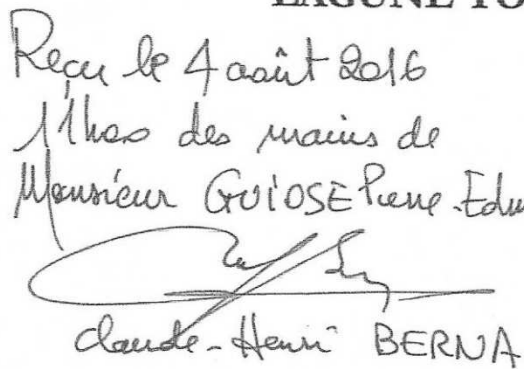 LAGUNE TO
Reçu le 4 août 2016
11h00 des mains de
Monsieur GUIOSE Pierre-Edm
Claude-Henri BERNA